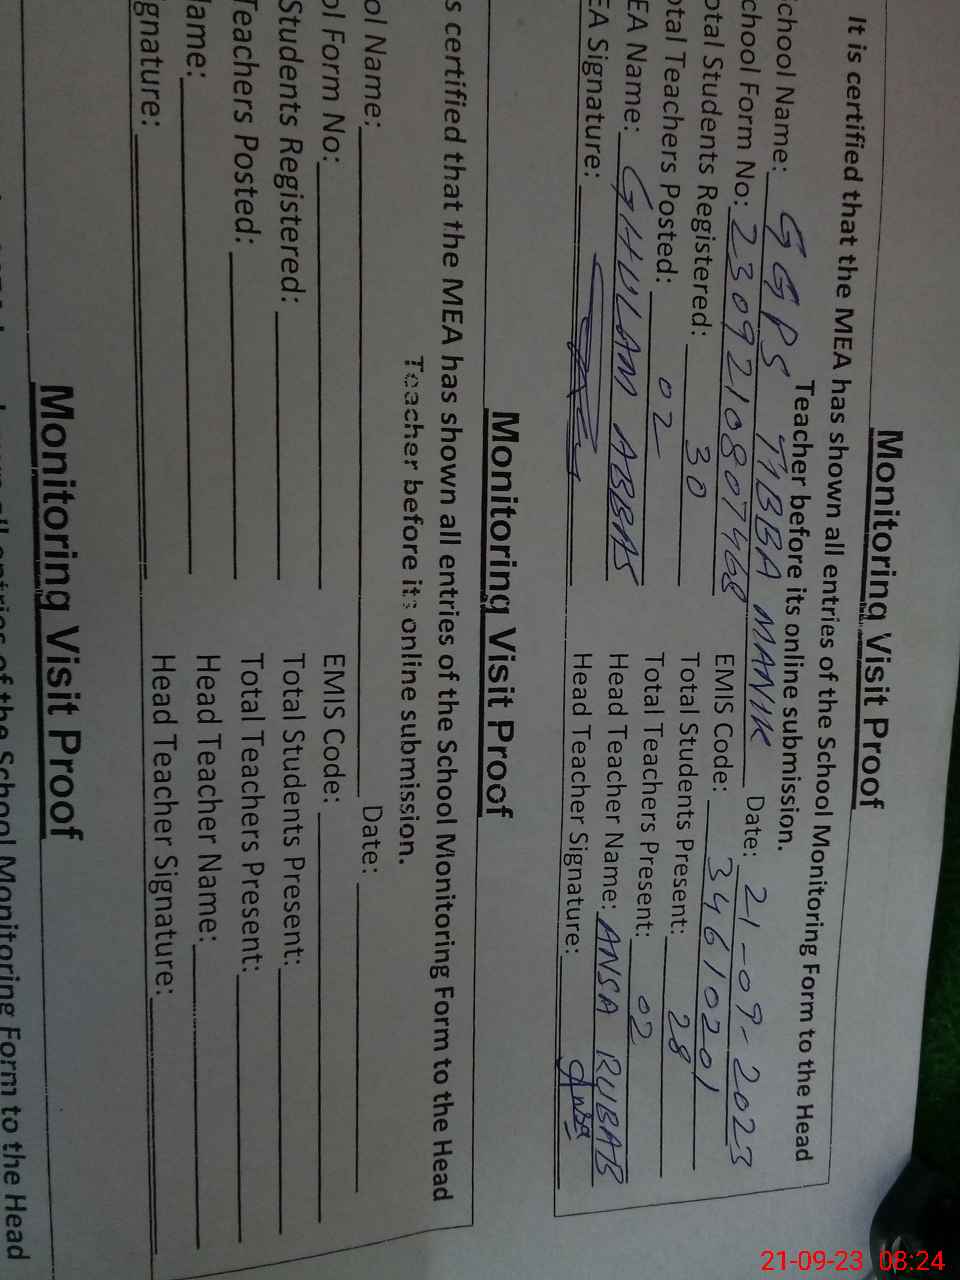 Monitoring Visit Proof
It is certified that the MEA has shown all entries of the School Monitoring Form to the Head
Teacher before its online submission.
School Name: GGPS TIBBA MANIK Date: 21-09-2023
School Form No: 2309210807468 EMIS Code: 34610201
otal Students Registered: 30 Total Students Present: 28
otal Teachers Posted: 02 Total Teachers Present: 02
EA Name: GHULAM ABBAS Head Teacher Name: ANSA RUBAB
EA Signature: Head Teacher Signature: Ansa
Monitoring Visit Proof
s certified that the MEA has shown all entries of the School Monitoring Form to the Head
Teacher before its online submission.
ol Name: Date:
ol Form No: EMIS Code:
Students Registered: Total Students Present:
Teachers Posted: Total Teachers Present:
lame: Head Teacher Name:
gnature: Head Teacher Signature:
Monitoring Visit Proof
all entries of the School Monitoring Form to the Head
21-09-23 08:24